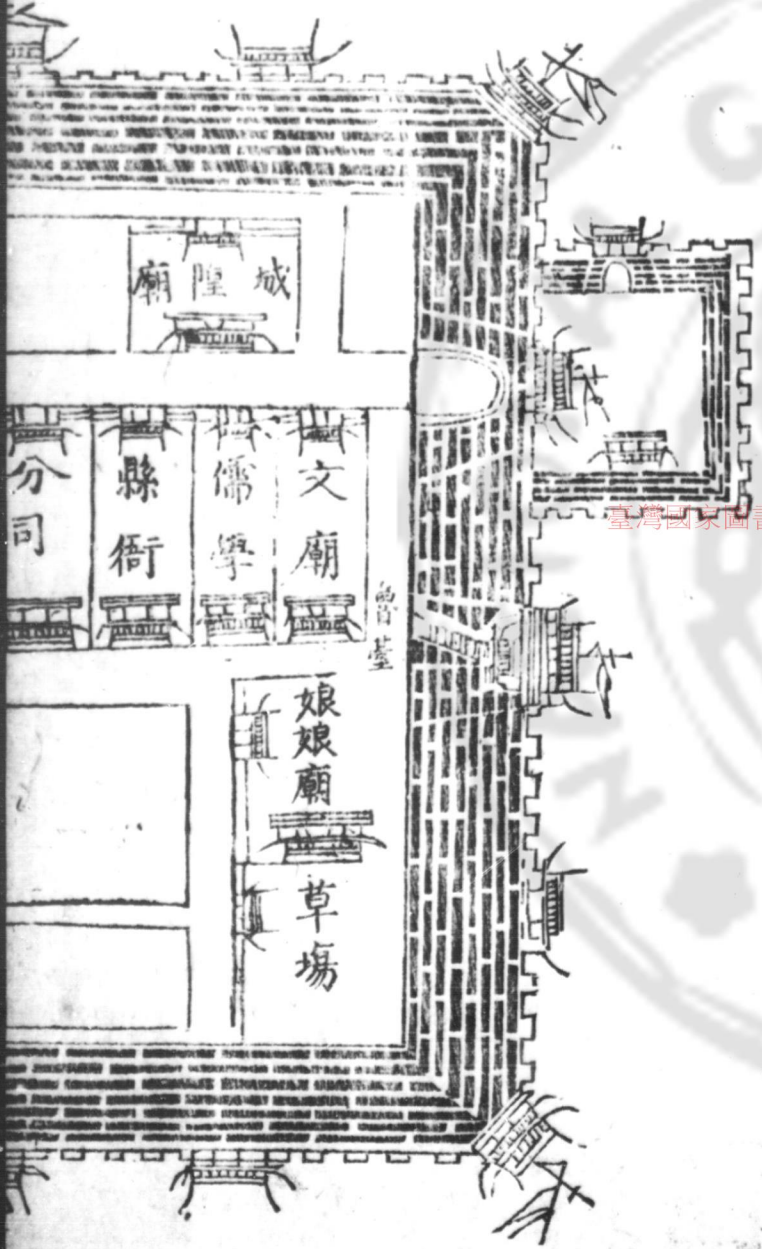 城隍廟
文廟
儒學
縣衙
分司
娘娘廟
草塲
臺灣國家圖